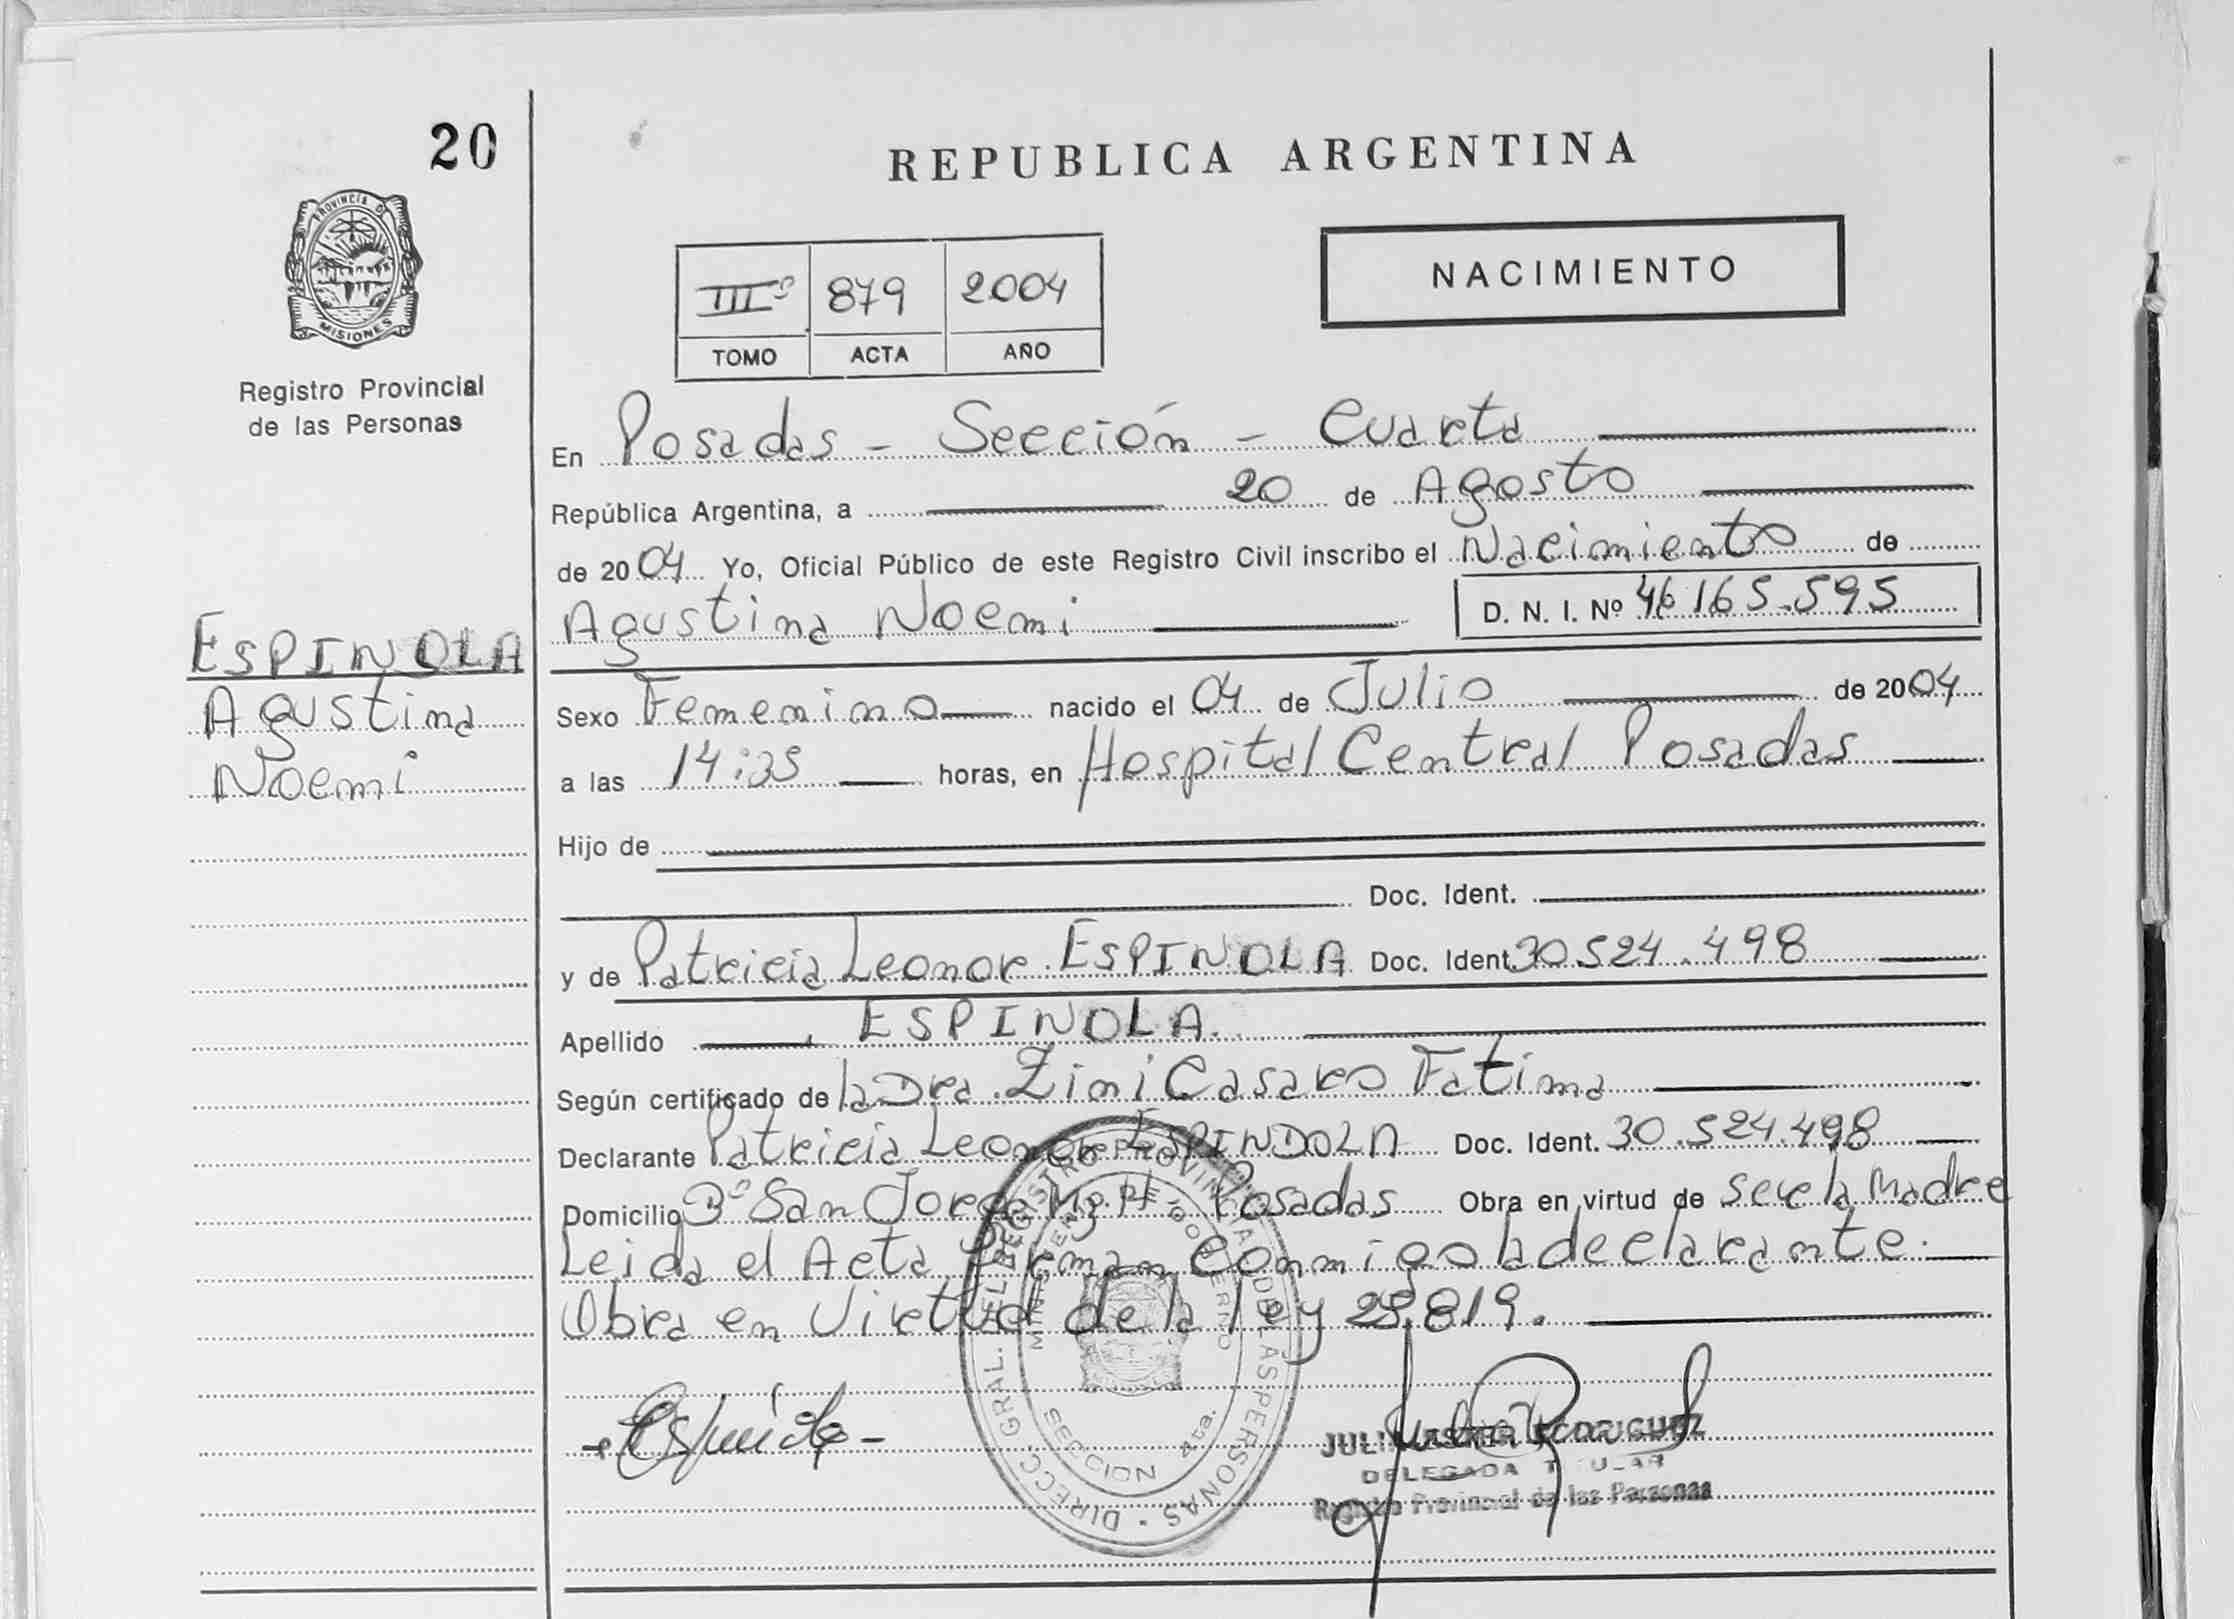 20
REPUBLICA ARGENTINA
PROVINCIA D MISIONES
NACIMIENTO
IIIº 879 2004
TOMO ACTA AÑO
Registro Provincial
de las Personas
En Posadas - Sección - Cuarta
República Argentina, a 20 de Agosto
de 2004 Yo, Oficial Público de este Registro Civil inscribo el Nacimiento de
Agustina Noemi D. N. I. Nº 46165.595
ESPINOLA
Agustina
Noemi
Sexo Femenino nacido el 04 de Julio de 2004
a las 14:35 horas, en Hospital Central Posadas
Hijo de
Doc. Ident.
y de Patricia Leonor ESPINOLA Doc. Ident. 30524.498
Apellido ESPINOLA.
Según certificado de la Dra. Zini Casares Fatima
Declarante Patricia Leonor ESPINDOLA Doc. Ident. 30.524.498
Domicilio Bº San Jorge Posadas Obra en virtud de Ser la Madre
Leida el Acta, Firman Conmigo la declarante.
Obra en Virtud de la ley 25.819.
DIRECC. GRAL. DEL REGISTRO PROVINCIAL DE LAS PERSONAS
MINISTERIO DE GOBIERNO
SECCION 4ta.
RODRIGUEZ
DELEGADA TITULAR
Registro Provincial de las Personas